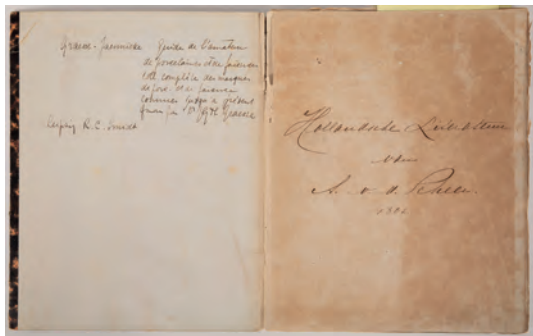 Graesse - Jaennicke Guide de l'amateur
de porcelaines et de faiences
coll. complète des marques
de porc. et de faience
connues jusqu'à présent
Graesse
Leipzig R. C.
Hollandsche Literatuur
van
A. v. d.